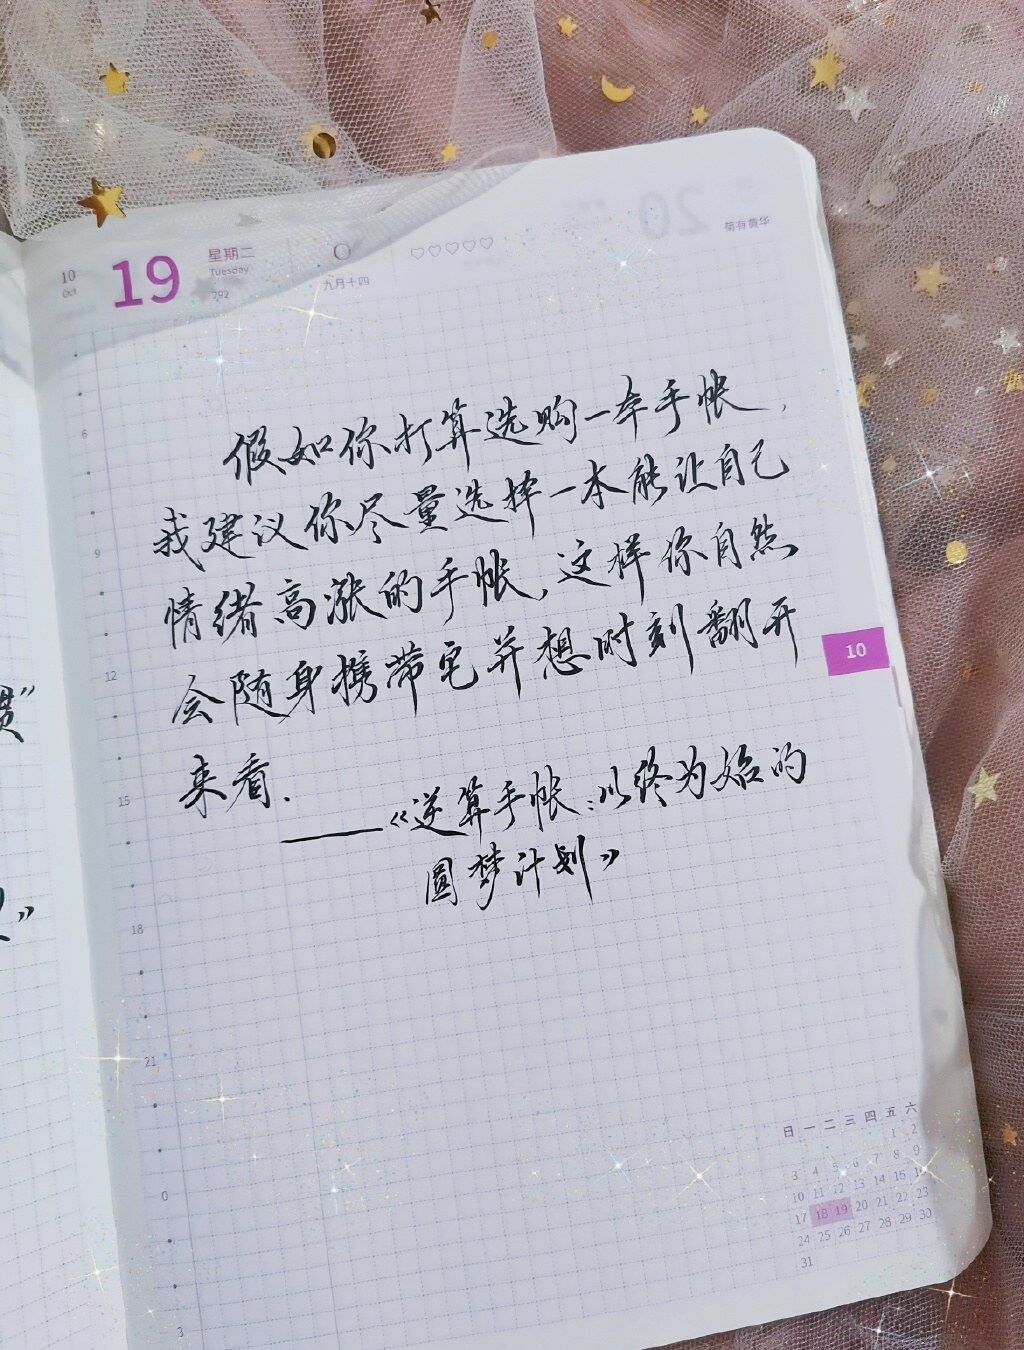 10
Oct
19
星期二
Tuesday
292
九月十四
♡♡♡♡♡
20
菊有黄华
假如你打算选购一本手帐，
我建议你尽量选择一本能让自己
情绪高涨的手帐，这样你自然
会随身携带它并想时刻翻开
来看.
——《逆算手帐:以终为始的
圆梦计划》
惯”
》
6
9
12
15
18
21
0
3
10
日 一 二 三 四 五 六
1 2
3 4 5 6 7 8 9
10 11 12 13 14 15 16
17 18 19 20 21 22 23
24 25 26 27 28 29 30
31